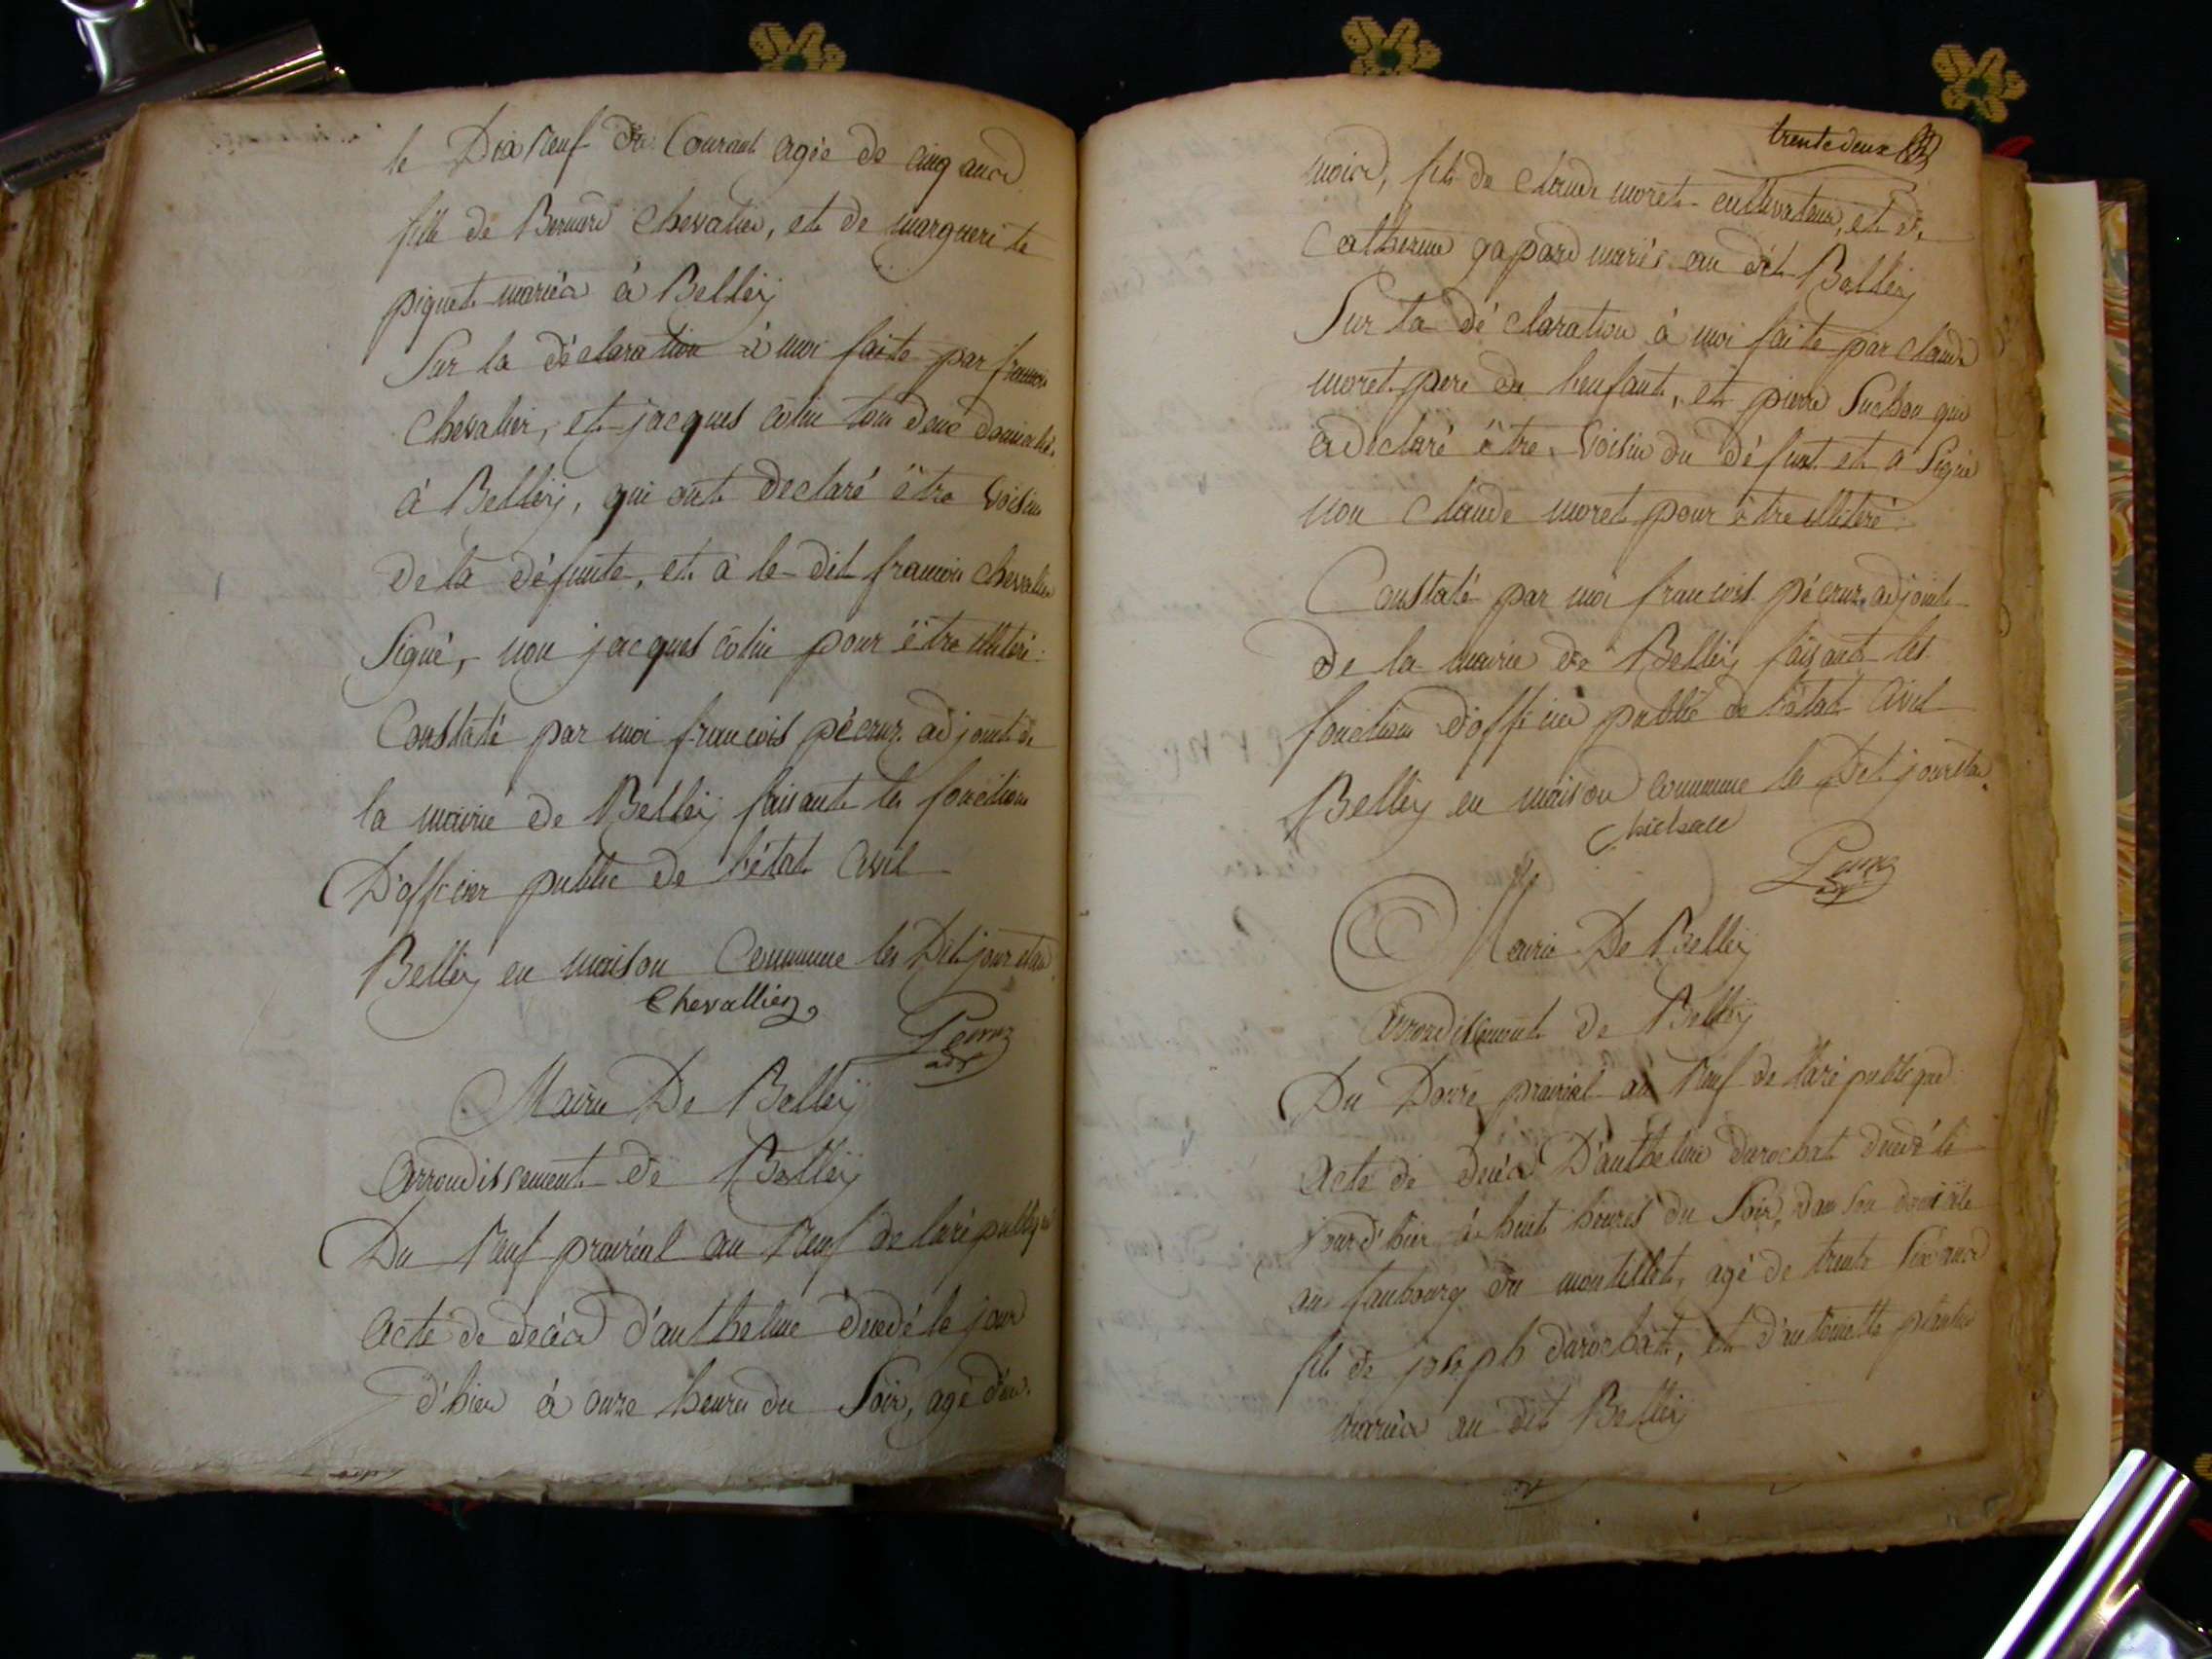 le Dix neuf du Courant agée de cinq ans
fille de Bernard Chevalier, et de marguerite
piquet mariés à Belleÿ
Sur la déclaration à moi faite par francois
Chevalier, et jacques colin tous deux domiciliés
à Belleÿ, qui ont declaré être voisins
de la défunte, et a le dit francois Chevalier
Signé, non jacques colin pour être illitéré.
Constaté par moi francois pécruz adjoint de
la mairie de Belleÿ faisant les fonctions
D'officier public de l'état Civil
Belleÿ en maison Commune les Dits jour et an
Chevallier
Pecruz
adj
Mairie De Belleÿ
arrondissement de Belleÿ
Du Neuf prairéal an Neuf de la république
Acte de decès d'anthelme décédé le jour
d'hier à onze heures du Soir, agé d'un
trente deux 32
mois, fils de claude moret cultivateur, et de
Catherine gapard mariés au dit Belleÿ
Sur la déclaration à moi faite par claude
moret pere de l'enfant, et pierre Suchon qui
a declaré être voisin du défunt et a Signé
non claude moret pour être illitéré
Constaté par moi francois pécruz adjoint
de la mairie de Belleÿ faisant les
fonctions d'officier public de l'état Civil
Belleÿ en maison commune les Dits jour et an
Pecruz
adj
Mairie De Belleÿ
arrondissement de Belleÿ
Du Douze prairial an Neuf de la république
Acte de decès D'anthelme durochat décédé le
jour d'hier à huit heures du Soir, dans son domicile
au faubourg du montillet, agé de trente Six ans
fils de joseph durochat, et d'antoinette
mariés au dit Belleÿ